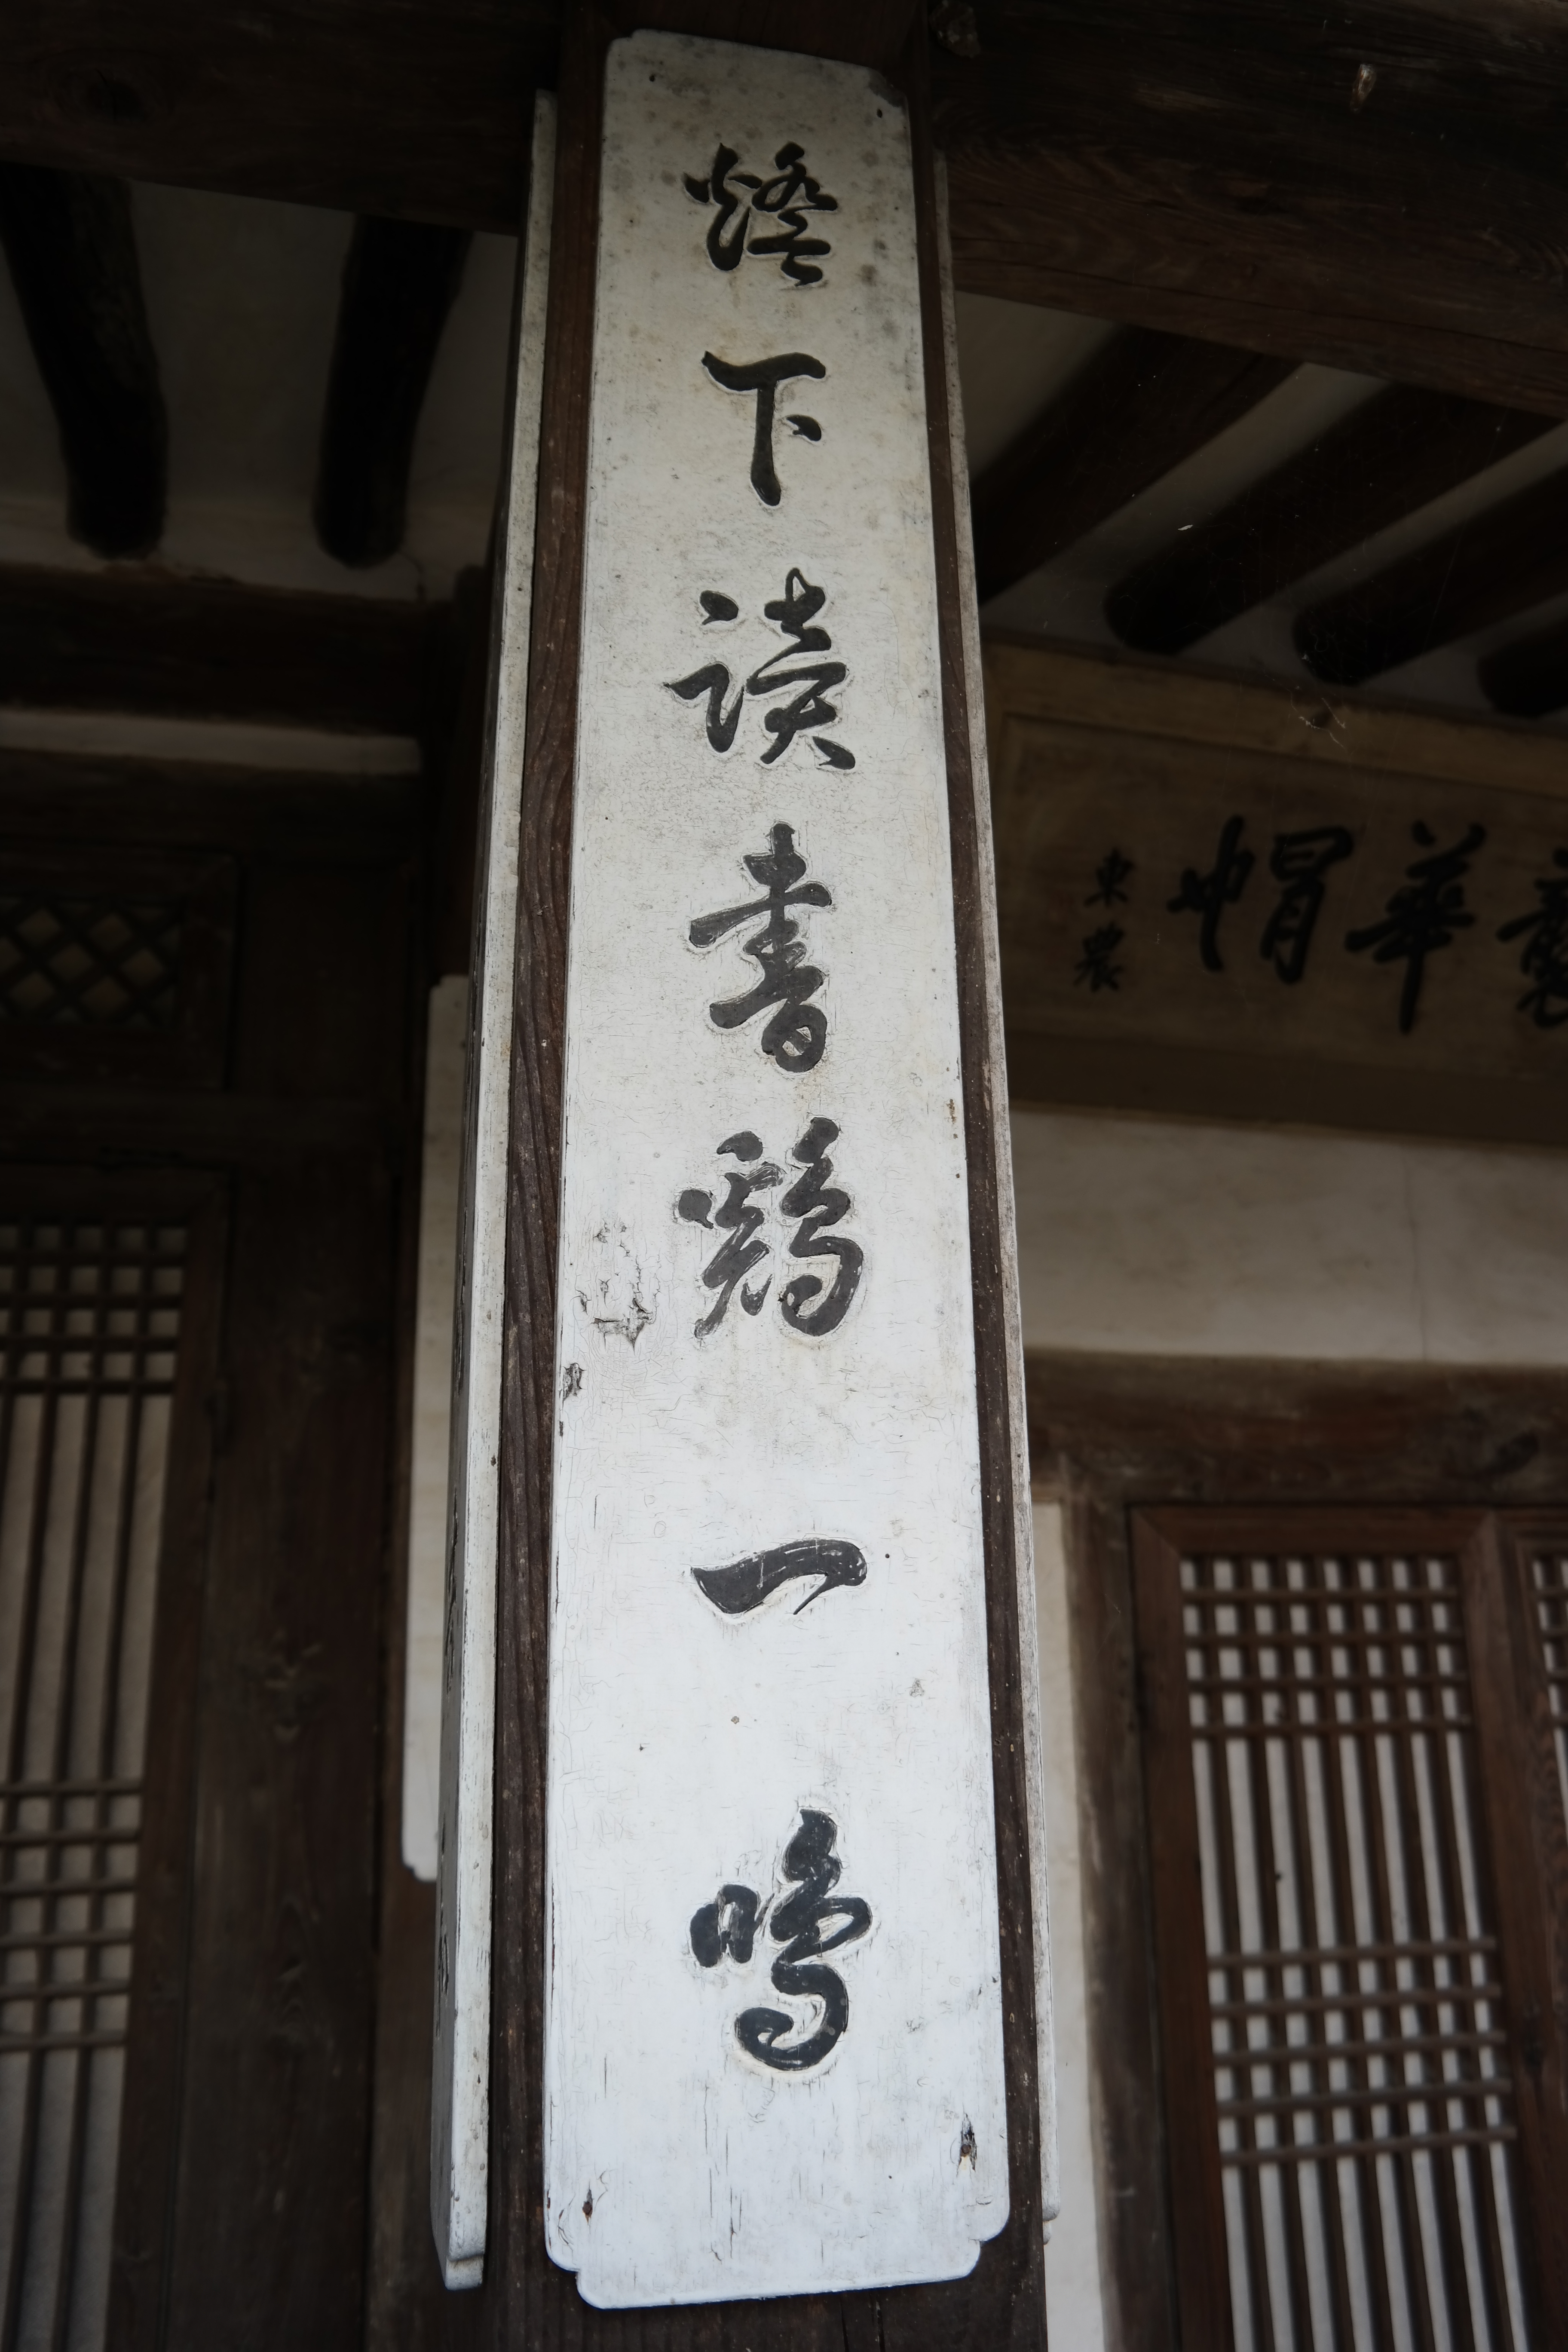 燈下讀書鷄一鳴
華帽
東農